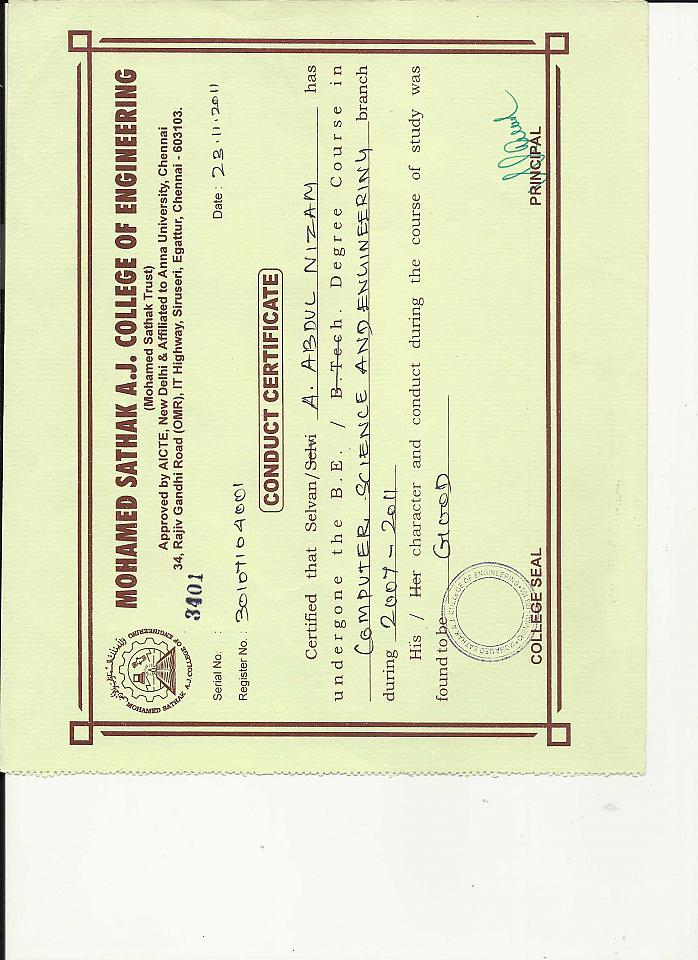 MOHAMED SATHAK A.J. COLLEGE OF ENGINEERING
(Mohamed Sathak Trust)
Approved by AICTE, New Delhi & Affiliated to Anna University, Chennai
34, Rajiv Gandhi Road (OMR), IT Highway, Siruseri, Egattur, Chennai - 603103.
MOHAMED SATHAK A.J. COLLEGE OF ENGINEERING
3401
Serial No. :
Date : 23.11.2011
Register No. : 30107104001
CONDUCT CERTIFICATE
Certified that Selvan/Selvi A. ABDUL NIZAM has
undergone the B.E. / B.Tech. Degree Course in
COMPUTER SCIENCE AND ENGINEERING branch
during 2007-2011
His / Her character and conduct during the course of study was
found to be GOOD
COLLEGE SEAL
PRINCIPAL